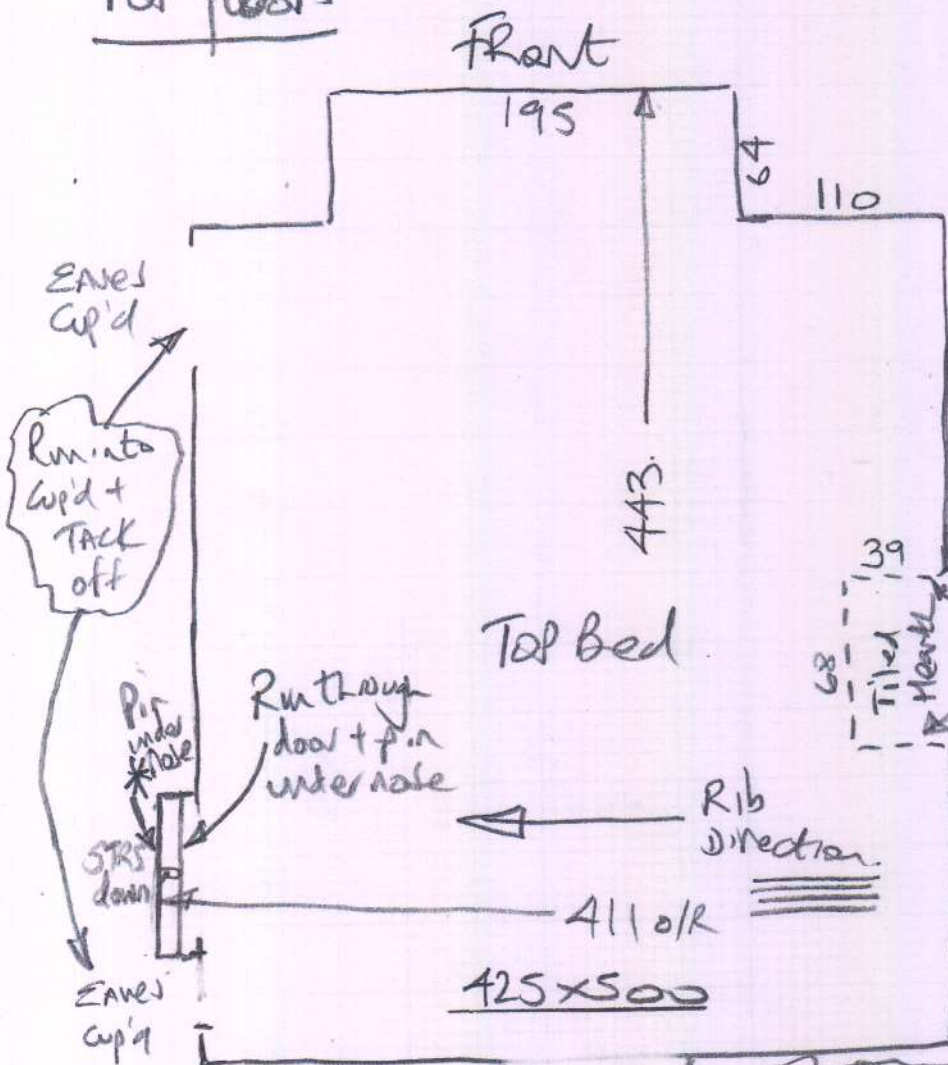 Top floor
Front
195
64
110
Eaves
Cup'd
Run into
Cup'd +
TACK
off
443.
39
68
Tiled
Hearth
Top Bed
Pin
under
nose
Run through
door + pin
under nose
Rib
Direction.
STRS
down
411 o/R
425 x 500
Eaves
Cup'd